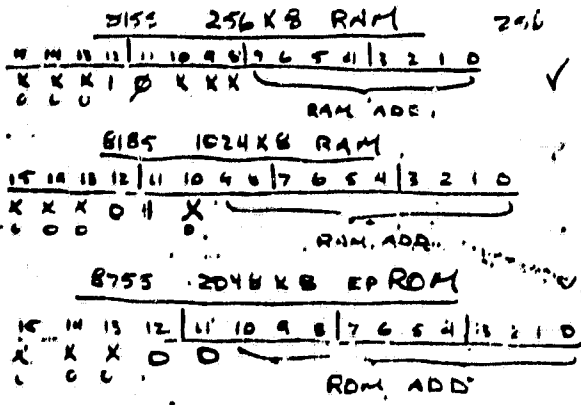 8155 256 X 8 RAM 256
15 14 13 12 | 11 10 9 8 | 7 6 5 4 | 3 2 1 0
X X X 1 Ø X X X
0 0 0
RAM ADD.
8185 1024 X 8 RAM
15 14 13 12 | 11 10 9 8 | 7 6 5 4 | 3 2 1 0
X X X 0 1 X
0 0 0 0
RAM ADD.
8755 2048 X 8 EPROM
15 14 13 12 | 11 10 9 8 | 7 6 5 4 | 3 2 1 0
X X X 0 0
0 0 0
ROM ADD